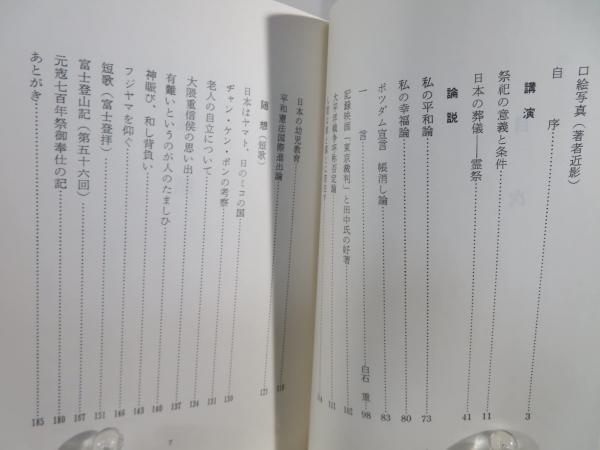 口絵写真（著者近影）
自序 3
講演
祭祀の意義と条件 11
日本の葬儀――霊祭 41
論説
私の平和論 73
私の幸福論 80
ポツダム宣言 帳消し論 83
一言 白石 重 98
記録映画「東京裁判」と田中氏の好著 102
大平洋戦争呼称否定論 111
日本の幼児教育
平和憲法国際進出論
随想（短歌） 121
日本はヤマト、日のミコの国
ヂャン・ケン・ポンの考察 130
老人の自立について 131
大隈重信侯の思い出 134
有難いというのが人のたましひ 137
神賑び、和し背負い 140
フジヤマを仰ぐ 143
短歌（富士登拝） 146
富士登山記（第五十六回） 151
元寇七百年祭御奉仕の記 180
あとがき 185
7